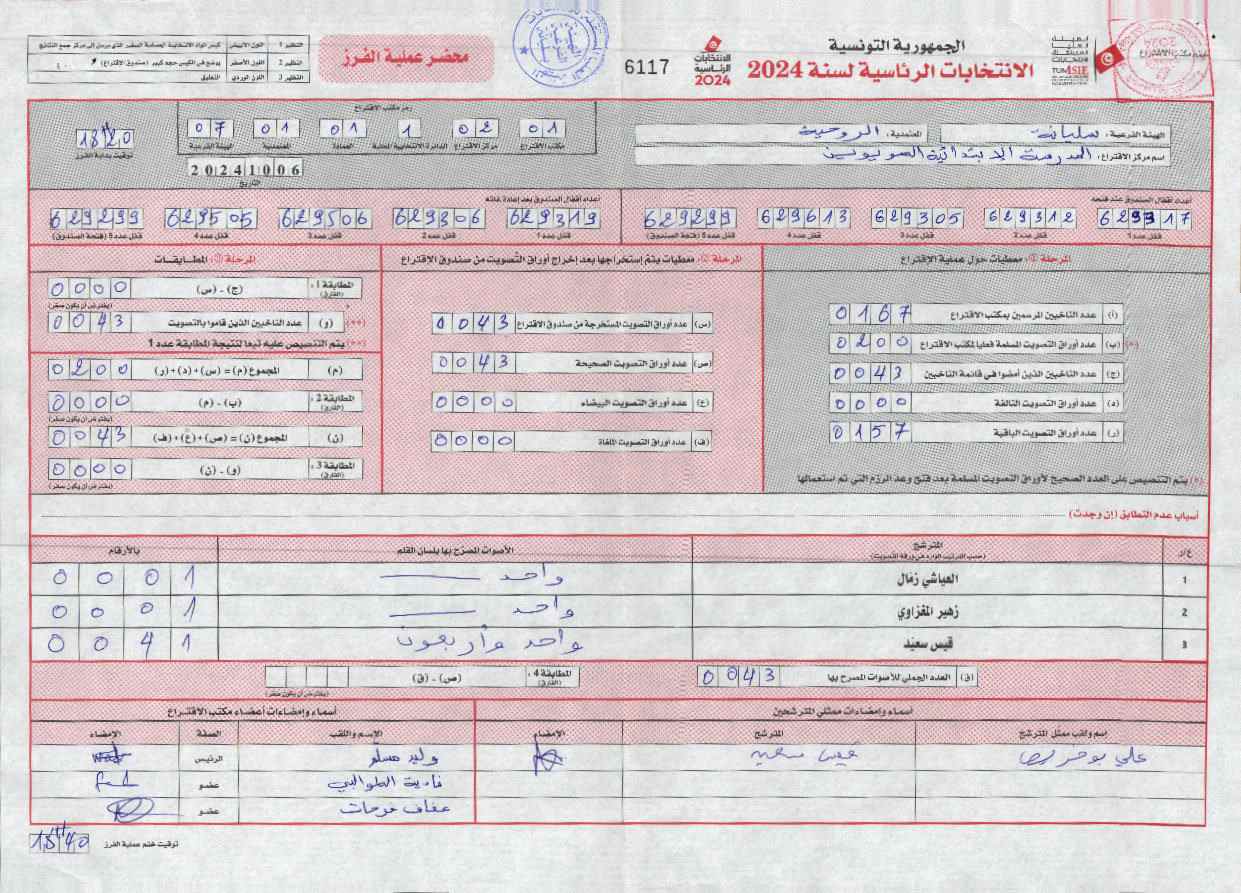 الجمهورية التونسية
الانتخابات الرئاسية لسنة 2024
الانتخابات
الرئاسية
2024
6117
محضر عملية الفرز
النظير 1 اللون الأبيض
النظير 2 اللون الأصفر
النظير 3 اللون الوردي للتعليق
الهيئة الفرعية : سليانة المعتمدية : الروحية
اسم مركز الاقتراع : المدرسة الابتدائية
رمز مكتب الاقتراع
01 02 1 01 01 07
مكتب الاقتراع مركز الاقتراع الدائرة الانتخابية المحلية العمادة المعتمدية الهيئة الفرعية
18 20
توقيت بداية الفرز
20241006
التاريخ
أعداد أقفال الصندوق عند فتحه
629317 629312 629305 629613 629299
قفل عدد 1 قفل عدد 2 قفل عدد 3 قفل عدد 4 قفل عدد 5 (فتحة الصندوق)
أعداد أقفال الصندوق بعد إعادة غلقه
629319 629306 629506 629505 629299
قفل عدد 1 قفل عدد 2 قفل عدد 3 قفل عدد 4 قفل عدد 5 (فتحة الصندوق)
المرحلة ①: معطيات حول عملية الاقتراع
(أ) عدد الناخبين المرسمين بمكتب الاقتراع 0167
(*) (ب) عدد أوراق التصويت المسلمة فعليا لمكتب الاقتراع 0200
(ج) عدد الناخبين الذين أمضوا في قائمة الناخبين 0043
(د) عدد أوراق التصويت التالفة 0000
(ر) عدد أوراق التصويت الباقية 0157
(*) يتم التنصيص على العدد الصحيح لأوراق التصويت المسلمة بعد فتح وعد الرزم التي تم استعمالها
المرحلة ②: معطيات يتم إستخراجها بعد إخراج أوراق التصويت من صندوق الاقتراع
(س) عدد أوراق التصويت المستخرجة من صندوق الاقتراع 0043
(ص) عدد أوراق التصويت الصحيحة 0043
(ع) عدد أوراق التصويت البيضاء 0000
(ف) عدد أوراق التصويت الملغاة 0000
المرحلة ③: المطابقات
المطابقة 1 : (الفارق) (ج) - (س) 0000
(يفترض أن يكون صفر)
(و) عدد الناخبين الذين قاموا بالتصويت (**) 0043
(**) يتم التنصيص عليه تبعا لنتيجة المطابقة عدد 1
(م) المجموع (م) = (س) + (د) + (ر) 0200
المطابقة 2 : (الفارق) (ب) - (م) 0000
(يفترض أن يكون صفر)
(ن) المجموع (ن) = (ص) + (ع) + (ف) 0043
المطابقة 3 : (الفارق) (و) - (ن) 0000
(يفترض أن يكون صفر)
أسباب عدم التطابق (إن وجدت)
ع/ر المترشح الأصوات المصرح بها بلسان القلم بالأرقام
(حسب الترتيب الوارد في ورقة التصويت)
1 العياشي زمّال واحد 0001
2 زهير المغزاوي واحد 0001
3 قيس سعيّد واحد وأربعون 0041
(ق) العدد الجملي للأصوات المصرح بها 0043
المطابقة 4 : (الفارق) (ص) - (ق)
(يفترض أن يكون صفر)
أسماء وإمضاءات ممثلي المترشحين
إسم ولقب ممثل المترشح المترشح الإمضاء
علي قيس سعيد
أسماء وإمضاءات أعضاء مكتب الاقتراع
الإسم واللقب الصفة الإمضاء
وليد مسلم الرئيس
فادية الطوالبي عضو
عفاف فرحات عضو
توقيت ختم عملية الفرز 18 40